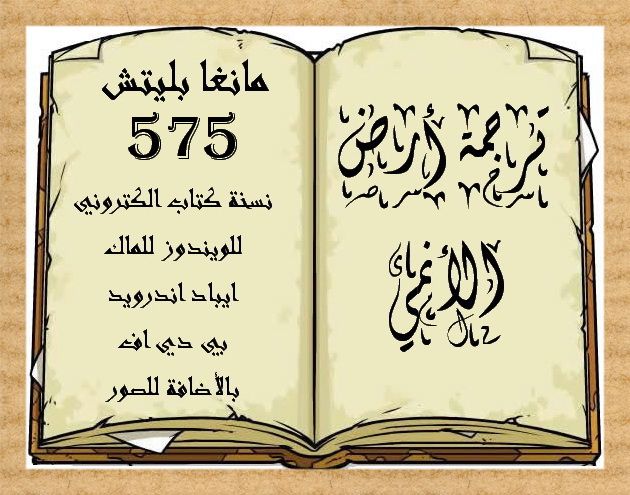 ترجمة أرض
الأنمي
مانغا بليتش
575
نسخة كتاب الكتروني
للويندوز للماك
ايباد اندرويد
بي دي اف
بالأضافة للصور